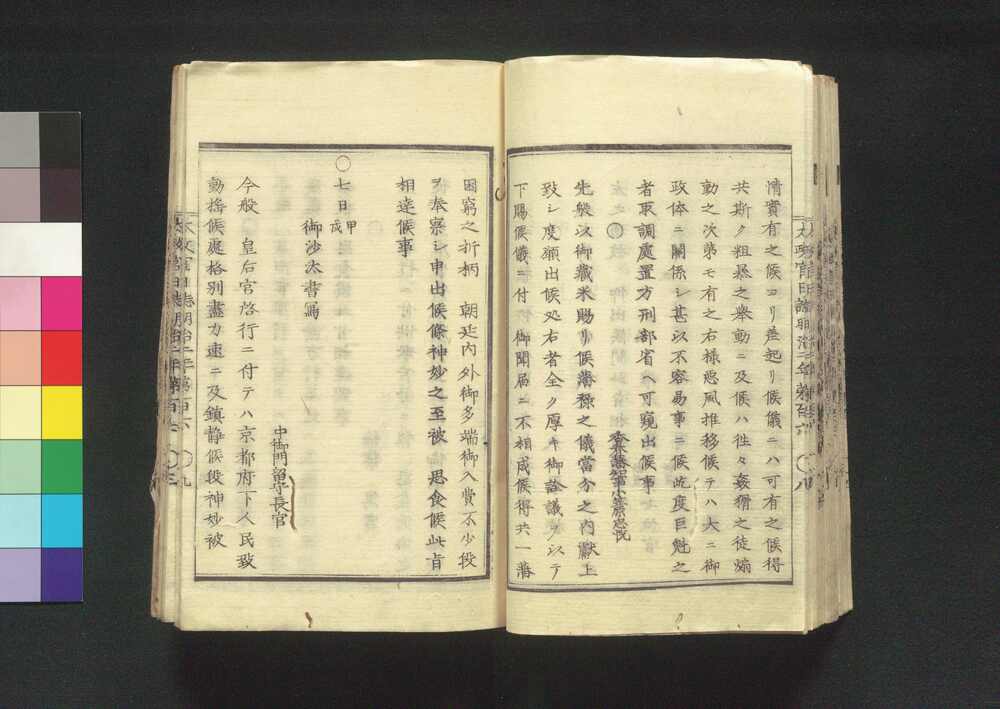 情實有之候ヨリ差起リ候儀ニハ可有之候得
共斯ク粗暴之擧動ニ及候ハ徃々姦猾之徒煽
動之次第モ有之右様惡風推移候テハ大ニ御
政体ニ關係シ甚以不容易事ニ候屹度巨魁之
者取調處置方刑部省ヘ可窺出候事
香春藩知事小笠原忠忱
先般以御藏米賜リ候藩祿之儀當分之内獻上
致シ度願出候処右者全ク厚キ御詮議ヲ以テ
下賜候儀ニ付御聞届ニ不相成候得共一藩
困窮之折柄 朝廷内外御多端御入費不少段
ヲ奉察シ申出候條神妙之至被 思食候此旨
相達候事
〇七日甲戌
御沙汰書寫
中御門留守長官
今般 皇后宮啓行ニ付テハ京都府下人民致
動揺候處格別盡力速ニ及鎮静候段神妙被
太政官日誌明治二年第百六 〇八